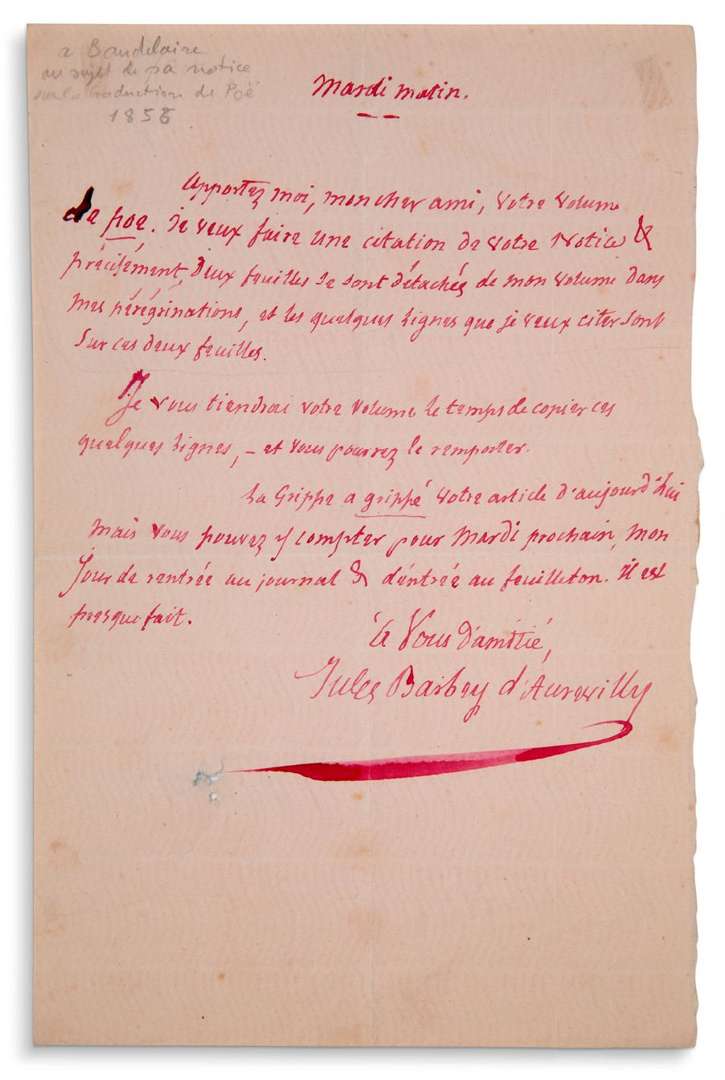 a Baudelaire
au sujet de sa notice
sur la traduction de Poë
185
Mardi matin.
Apportez moi, mon cher ami, votre volume
de Poe. Je veux faire une citation de votre Notice &
précisément, deux feuilles se sont détachés de mon volume dans
mes pérégrinations, et les quelques lignes que je veux citer sont
sur ces deux feuilles.
Je vous tiendrai votre volume le temps de copier ces
quelques lignes, – et vous pourrez le remporter.
La Grippe a grippé votre article d'aujourd'hui
mais vous pouvez y compter pour Mardi prochain, mon
jour de rentrée au journal & d'entrée au feuilleton. Il est
presque fait.
à Vous d'amitié,
Jules Barbey d'Aurevilly